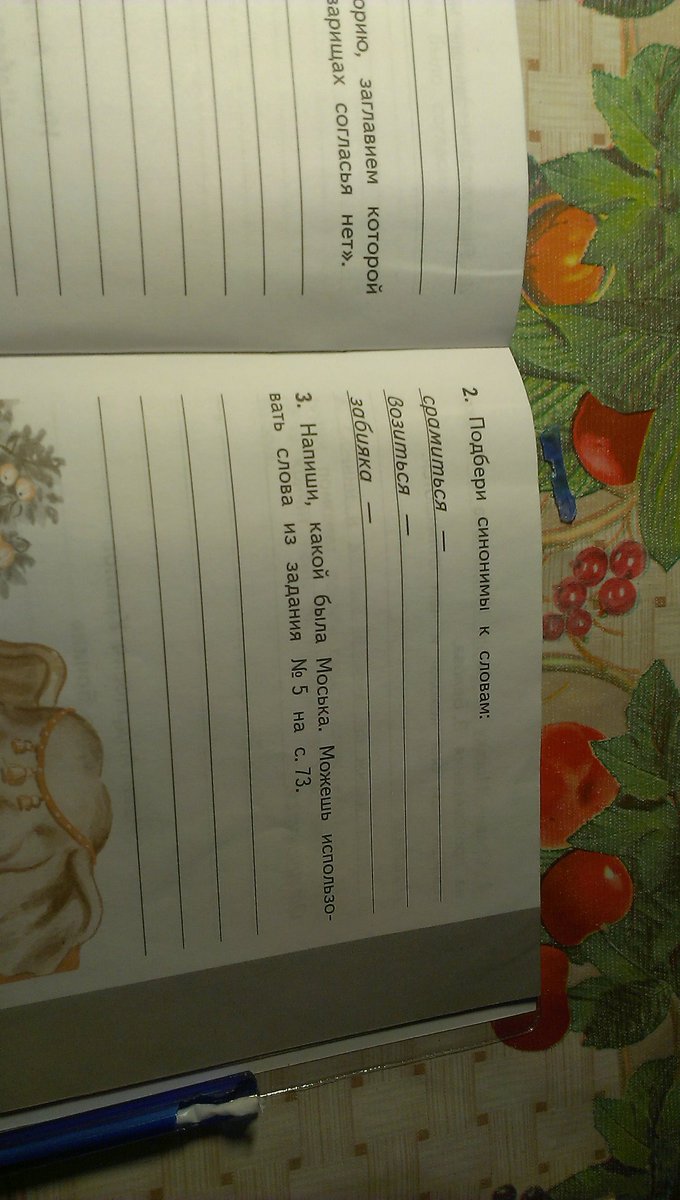 орию, заглавием которой
варищах согласья нет».
2. Подбери синонимы к словам:
срамиться —
возиться —
забияка —
3. Напиши, какой была Моська. Можешь использо-
вать слова из задания № 5 на с. 73.